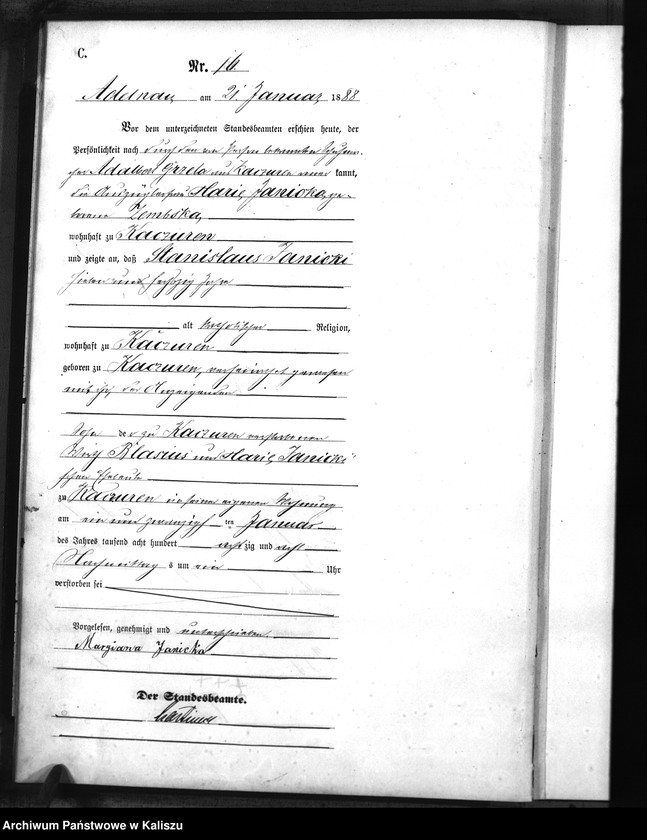 C.
Nr. 16
Adelnau am 21 Januar 1888
Vor dem unterzeichneten Standesbeamten erschien heute, der
Persönlichkeit nach durch den von Person bekannten
Adalbert Grzela aus Kaczuren kannt,
die Marie Janicka, ge-
borene Zembska,
wohnhaft zu Kaczuren
und zeigte an, daß Stanislaus Janicki
sieben und sechszig Jahre
alt katholischer Religion,
wohnhaft zu Kaczuren
geboren zu Kaczuren, verheirathet gewesen
mit ihr, der Anzeigenden
Sohn der zu Kaczuren verstorbenen
Wirth Blasius und Marie, Janicki
schen Eheleute
zu Kaczuren in seiner eigenen Wohnung
am ein und zwanzigsten Januar
des Jahres tausend acht hundert achtzig und acht
Nachmittags um ein Uhr
verstorben sei
Vorgelesen, genehmigt und unterschrieben
Maryiana Janicka
Der Standesbeamte.
Archiwum Państwowe w Kaliszu